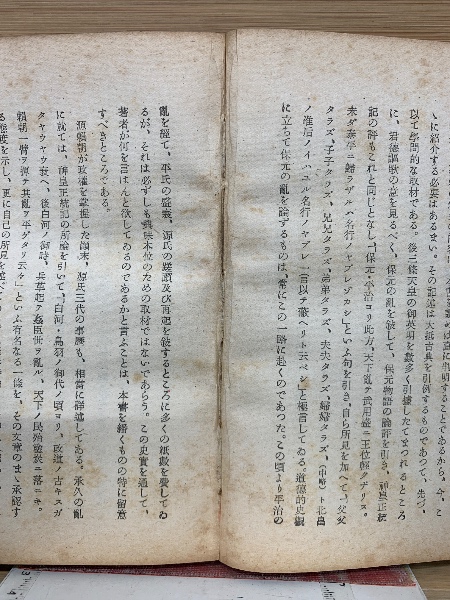 ゝに紹介する必要はあるまい。その記述は大抵古典を引例するものであつて、先づ、
以て學問的な取材である。後三條天皇の御英明を數多く引據したてまつれるところ
に、君德謳歌の意を見るべく、保元の亂を敍して、保元物語の論評を引き、神皇正統
記の評もこれと同じとなし、「保元・平治ヨリ此方、天下亂テ武用盛ニ王位輕クナリヌ。
未ダ泰平ニ歸ラザルハ名行ノヤブレソメシニヨレリ」といふ句を引き、自ら所見を加へて、「父父
タラズ、子子タラズ、兄兄タラズ、弟弟タラズ、夫夫タラズ、婦婦タラズ、(中略)ト北畠
ノ准后ノイハユル名行ノヤブレ、一言以テ蔽ヘリト云ベシ」と極言してゐる。道德的史觀
に立つて保元の亂を論ずるものは、常にこの一路に赴くのであつた。この頃より平治の
亂を經て、平氏の盛衰、源氏の蹉躓及び再起を敍するところに多くの紙數を費してゐ
るが、それは必ずしも興味本位のための取材ではないであらう。この史實を通して、
著者が何を言はんと欲してゐるのであるかと言ふことは、本書を繙くものの特に留意
すべきところである。
源賴朝が政權を掌握した顚末、源氏三代の事歷も、相當に詳述してある。承久の亂
に就ては、神皇正統記の所論を引いて、「白河・鳥羽ノ御代ノ頃ヨリ、政道ノ古キスガ
タヤウヤウ衰ヘ、後白河ノ御時、兵革起テ姦臣世ヲ亂ル、天下ノ民殆塗炭ニ落ニキ。
賴朝一臂ヲ彈テ其亂ヲ平ゲタリ云々」といふ有名なる一條を、その文章のまゝ承認す
る態度を示し、更に自己の所見を